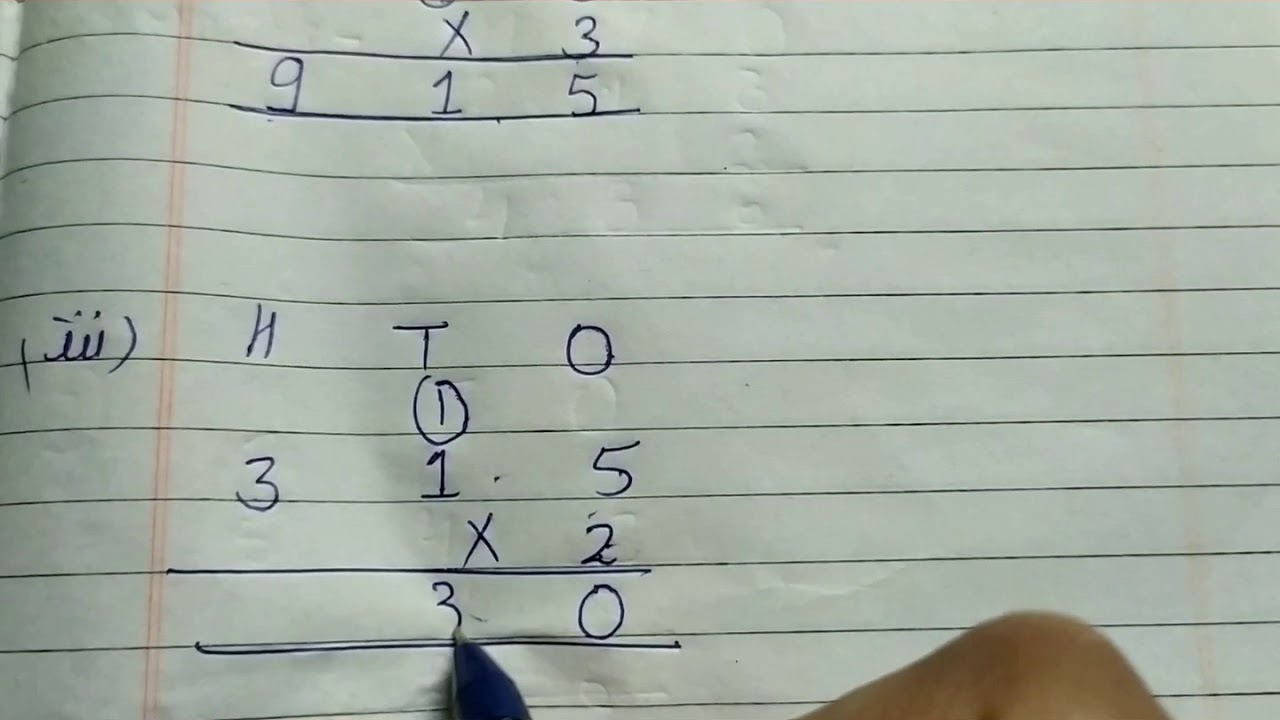 X 3
9 1 5
(iii) H T O
1
3 1 5
X 2
3 0